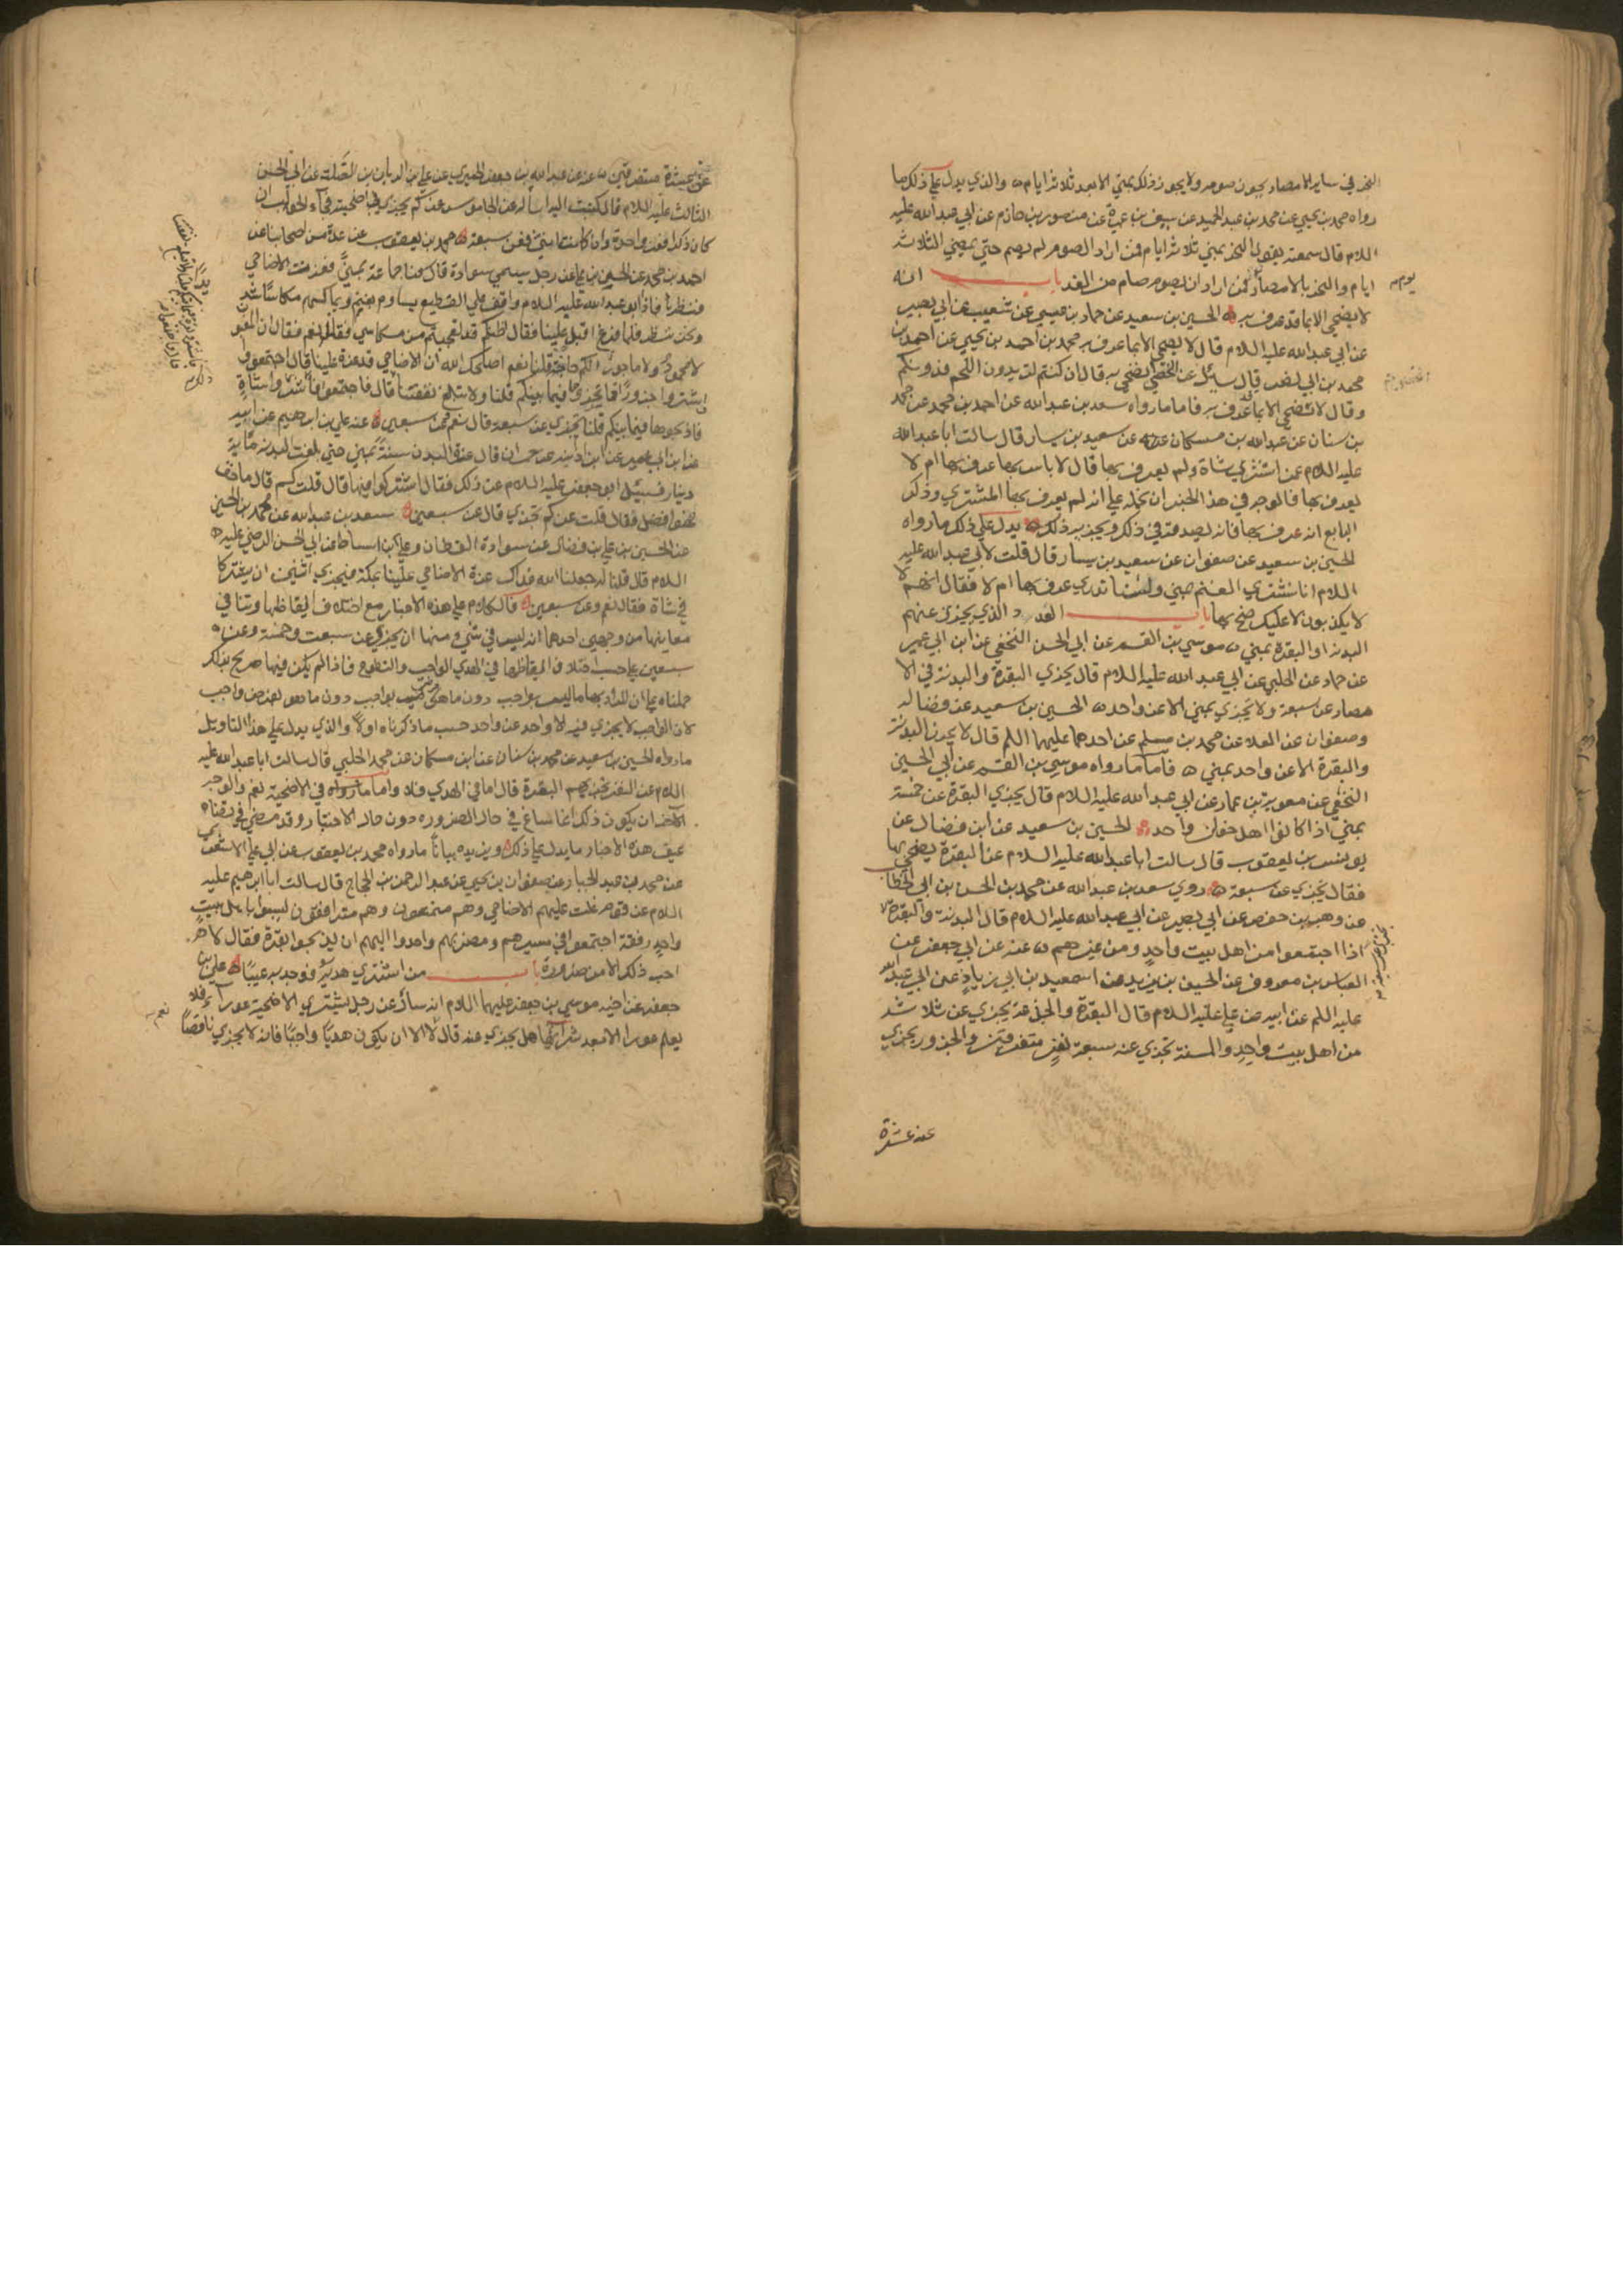 النحر في ساير الامصار يجوز صومه ولا يجوز ذلك بمني الا بعد ثلاثة ايام ه والذي يدل علي ذلك ما
رواه محمد بن يحيي عن محمد بن عبد الحميد عن سيف بن عميرة عن منصور بن حازم عن ابي عبد الله عليه
اللام قال سمعته يقول النحر بمني ثلاثة ايام فمن اراد الصوم لم يصم حتي يمضي الثلاثة
ايام والنحر بالامصار يوم فمن اراد ان يصوم صام من الغد باب انه
لا يضحي الا بما قد عرف به ه الحسين بن سعيد عن حماد بن عيسي عن شعيب عن ابي بصير
عن ابي عبد الله عليه اللام قال لا يضحي الا بما عرف به محمد بن احمد بن يحيي عن احمد بن
محمد بن ابي نصر قال سئل عن الخصي يضحي به قال ان كنتم تريدون اللحم فدونكم
وقال لا تضحي الا بما قد عرف به فاما ما رواه سعد بن عبد الله عن احمد بن محمد عن محمد
بن سنان عن عبد الله بن مسكان عن سعيد بن يسار قال سالت ابا عبد الله
عليه اللام عمن اشتري شاة ولم يعرف بها قال لا باس بها عرف بها ام لا
يعرف بها فالوجه في هذا الخبر ان نحمله علي انه لم يعرف بها المشتري وذكر
البايع انه عرف بها فانه يصدقه في ذلك ويجزيه ذلك ه يدل علي ذلك ما رواه
الحسين بن سعيد عن صفوان عن سعيد بن يسار قال قلت لابي عبد الله عليه
اللام انا نشتري الغنم بمني ولسنا ندري عرف بها ام لا فقال انهم
لا يكذبون لا عليك ضح بها باب العدد الذي يجزي عنهم
البدنة او البقرة بمني ه موسي بن القسم عن ابي الحسن النخعي عن ابن ابي عمير
عن حماد عن الحلبي عن ابي عبد الله عليه اللام قال يجزي البقرة والبدنة في الا
مصار عن سبعة ولا يجزي بمني الا عن واحد ه الحسين بن سعيد عن فضالة
وصفوان عن العلا عن محمد بن مسلم عن احدهما عليهما اللم قال لا يجوز البدنة
والبقرة الا عن واحد بمني ه فاما ما رواه موسي بن القسم عن ابي الحسين
النخعي عن معوية بن عمار عن ابي عبد الله عليه اللام قال يجزي البقرة عن خمسة
بمني اذا كانوا اهل خوان واحد ه الحسين بن سعيد عن ابن فضال عن
يونس بن يعقوب قال سالت ابا عبد الله عليه اللام عن البقرة يضحي بها
فقال يجزي عن سبعة ه روي سعد بن عبد الله عن محمد بن الحسن ابن ابي الخطاب
عن وهيب بن حفص عن ابي بصير عن ابي عبد الله عليه اللام قال البدنة والبقرة
اذا اجتمعوا من اهل بيت واحد ومن غيرهم ه عنه عن ابي جعفر عن
العباس بن معروف عن الحسين بن يزيد عن اسمعيل بن ابي زياد عن ابي عبد الله
عليه اللم عن ابيه عن علي عليه اللام قال البقرة والجذعة يجزي عن ثلاثة
من اهل بيت واحد والمسنة تجزي عن سبعة نفر متفرقين والجزور يجزي
عن عشرة
عن عشرة متفرقين ه عنه عن عبد الله بن جعفر الحميري عن علي بن الريان بن الصلت عن ابي الحسن
الثالث عليه اللام قال كتبت اليه اساله عن الجاموس عن كم يجزي في الضحية فجاء الجواب ان
كان ذكرا فعن واحد وان كان انثي فعن سبعة ه محمد بن يعقوب عن عدة من اصحابنا عن
احمد بن محمد عن الحسين بن علي عن رجل يسمي سوادة قال كنا جماعة بمني فعزت الاضاحي
فنظرنا فاذا ابو عبد الله عليه اللام واقف علي القطيع يساوم بغنم ويماكسهم مكاسا شديدا
ونحن ننظر فلما فرغ اقبل علينا فقال اظنكم قد تعجبتم من مكاسي فقلنا نعم فقال ان المغبون
لا محمود ولا ماجور الكم حاجة قلنا نعم اصلحك الله ان الاضاحي قد عزت علينا قال اجتمعوا
فاشتروا جزورا فانحروها فيما بينكم قلنا ولا تبلغ نفقتنا قال فاجتمعوا فاشتروا شاة
فاذبحوها فيما بينكم قلنا تجزي عن سبعة قال نعم وعن سبعين ه عنه علي بن ابرهيم عن ابيه
عن ابن ابي عمير عن ابن اذينة عن حمران قال عزت البدن سنة بمني حتي بلغت البدنة ماية
دينار فسئل ابو جعفر عليه اللام عن ذلك فقال اشتركوا فيها قال قلت كم قال ما خف
فهو افضل فقال قلت عن كم تجزي قال عن سبعين ه سعد بن عبد الله عن محمد بن الحسين
عن الحسين بن علي بن فضال عن سوادة القطان وعلي بن اسباط عن ابي الحسن الرضي عليه
اللام قال قلنا له جعلنا الله فداك عزت الاضاحي علينا بمكة فيجزي اثنين ان يشتركا
في شاة فقال نعم وعن سبعين ه فالكلام علي هذه الاخبار مع اختلاف الفاظها وتنافي
معانيها من وجهين احدهما انه ليس في شي منها ان يجزي عن سبعة وخمسة وعن
سبعين علي حسب اختلاف الفاظها في الهدي الواجب والتطوع فاذا لم يكن فيها صريح بذلك
حملناه علي ان المراد بها ما ليس بواجب دون ما هو فرض واجب
لان الواجب لا يجزي فيه الا واحد عن واحد حسب ما ذكرناه اولا والذي يدل علي هذا التاويل
ما رواه الحسين بن سعيد عن محمد بن سنان عن ابن مسكان عن محمد الحلبي قال سالت ابا عبد الله عليه
اللام عن النفر تجزيهم البقرة قال اما في الهدي فلا واما في الاضحية نعم والوجه
الاخر ان يكون ذلك انما ساغ في حال الضرورة دون حال الاختيار وقد مضي في
هذه الاخبار ما يدل علي ذلك ويزيده بيانا ما رواه محمد بن يعقوب عن ابي علي الاشعري
عن محمد بن عبد الجبار عن صفوان بن يحيي عن عبد الرحمن بن الحجاج قال سالت ابا ابرهيم عليه
اللام عن قوم غلت عليهم الاضاحي وهم متمتعون وهم مترافقون ليسوا باهل بيت
واحد رفقة اجتمعوا في مسيرهم ومضربهم واحد الهم ان يذبحوا بقرة فقال لا
احب ذلك الا من ضرورة باب من اشتري هديا فوجد به عيبا ه علي بن
جعفر عن اخيه موسي بن جعفر عليهما اللام انه ساله عن رجل يشتري الاضحية عورا فلا
يعلم عورا الا بعد شرائها هل يجزي عنه قال نعم الا ان يكون هديا واجبا فانه لا يجزي ناقصا